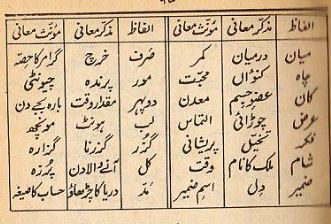 الفاظ مذکر معانی مؤنث معانی الفاظ مذکر معانی مؤنث معانی
میان درمیان کمر صَرف خرچ گرامر کا حصہ
چاہ کنواں محبت مور پرندہ چیونٹی
کان عضوِ جسم معدن دوپہر مقدارِ وقت بارہ بجے دن
عرض چوڑائی التماس لب ہونٹ مونچھ
فکر تخیل پریشانی گزر گزرنا گزارہ
شام ملک کا نام وقت کل آنے والا دن پرزہ
ضمیر دِل اسمِ ضمیر مَدّ دریا کا چڑھاؤ حساب کا صیغہ